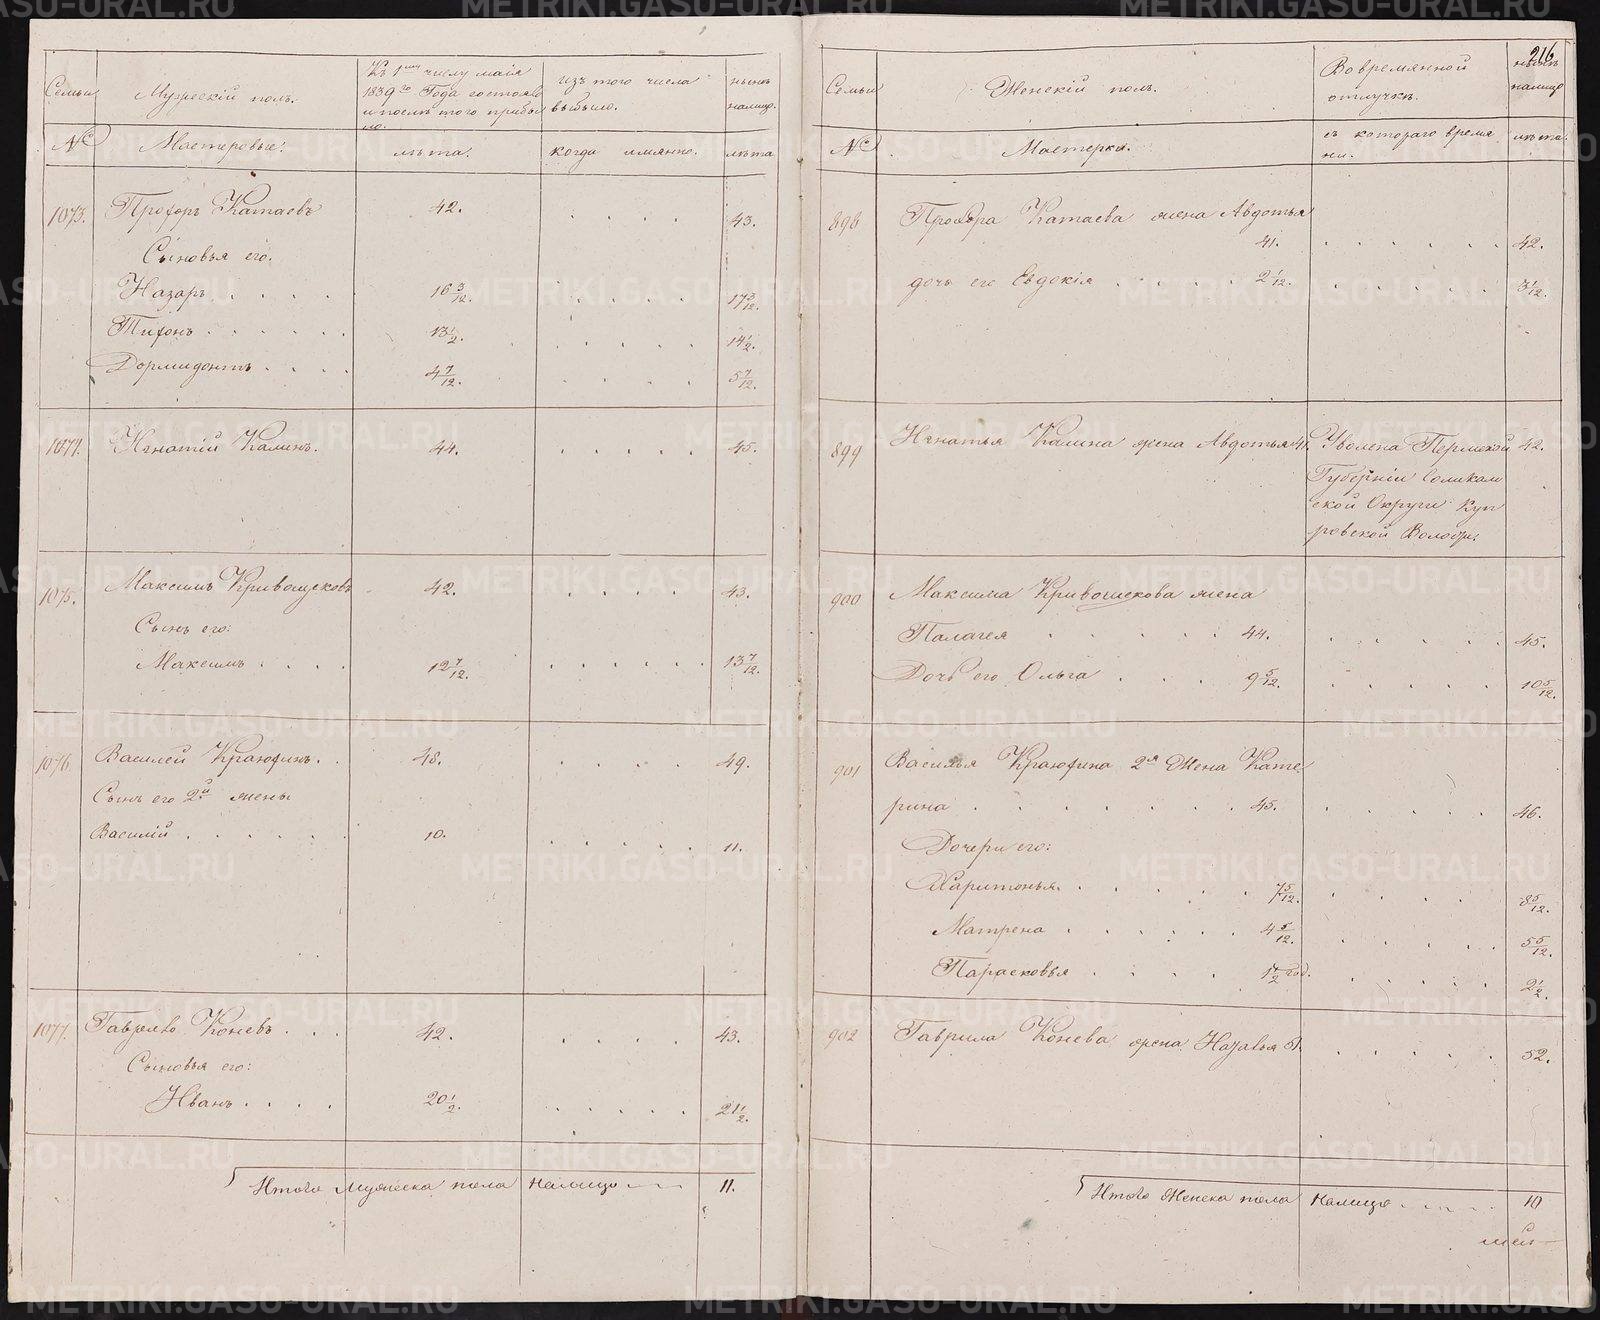 Семьи
Мужескій полъ.
Къ 1му числу майя
1839го Года состояло
и послѣ того прибы
ло.
изъ того числа
выбыло.
нынѣ
налицо.
№
Мастеровые:
лѣта.
когда имянно.
лѣта
1073.
Профоръ Катаевъ
42.
43.
Сыновья его.
Назаръ
16 3/12.
17 3/12.
Тифонъ
13 1/2.
14 1/2.
Дормидонтъ
4 7/12.
5 7/12.
1074.
Игнатій Калинъ.
44.
45.
1075.
Максимъ Кривощековъ
42.
43.
Сынъ его:
Максимъ
12 7/12.
13 7/12.
1076
Василей Краюфинъ.
48.
49.
Сынъ его 2й жены
Василій
10.
11.
1077.
Гаврило Коневъ
42.
43.
Сыновья его:
Иванъ
20 1/2.
21 1/2.
Итого Мужеска пола налицо
11.
216
Семьи
Женскій полъ.
Вовремянной
отлучкѣ.
нынѣ
налицо
№
Мастерки.
съ котораго время
ни.
лѣта.
898
Профора Катаева жена Авдотья
41.
42.
дочь его Евдокія
2 1/12.
3 1/12.
899
Игнатья Калина жена Авдотья 41.
Уволена Пермской
42.
Губерніи Соликам
ской Округи Куп
ровской Волости.
900
Максима Кривошекова жена
Палагея
44.
45.
Дочь его Ольга
9 5/12.
10 5/12.
901
Василья Краюфина 2я Жена Кате
рина
45.
46.
Дочери его:
Харитонья.
7 5/12.
8 5/12.
Матрена
4 5/12.
5 5/12.
Парасковья
1 1/2 год.
2 1/2.
902
Гаврила Конева жена Наталья 51.
52.
Итого Женска пола налицо
10
METRIKI.GASO-URAL.RU